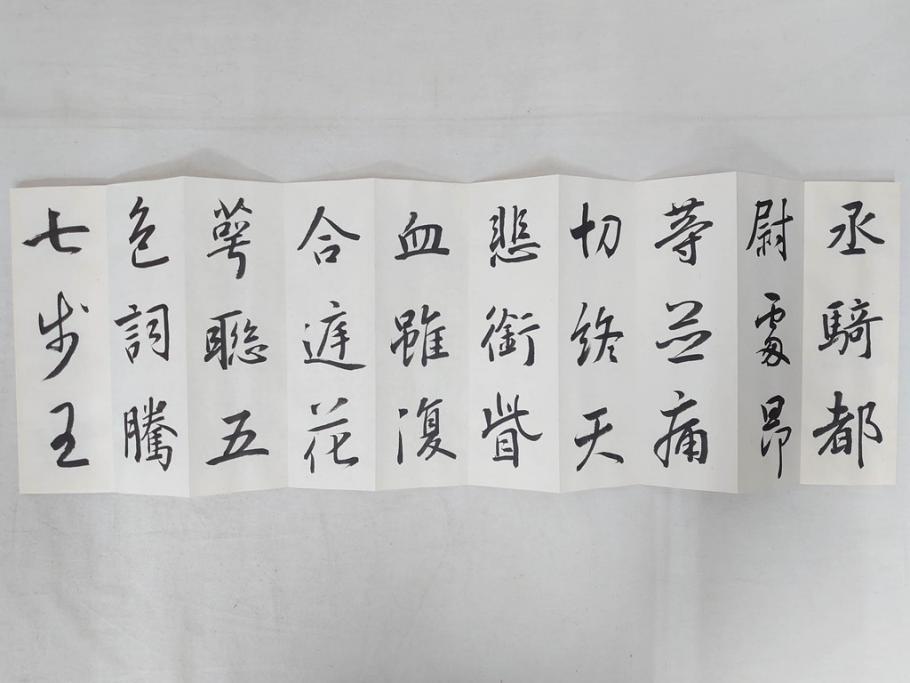 丞騎都
尉昂
等並痛
切終天
悲銜眥
血雖復
合花
萼聯五
色詞騰
七步王